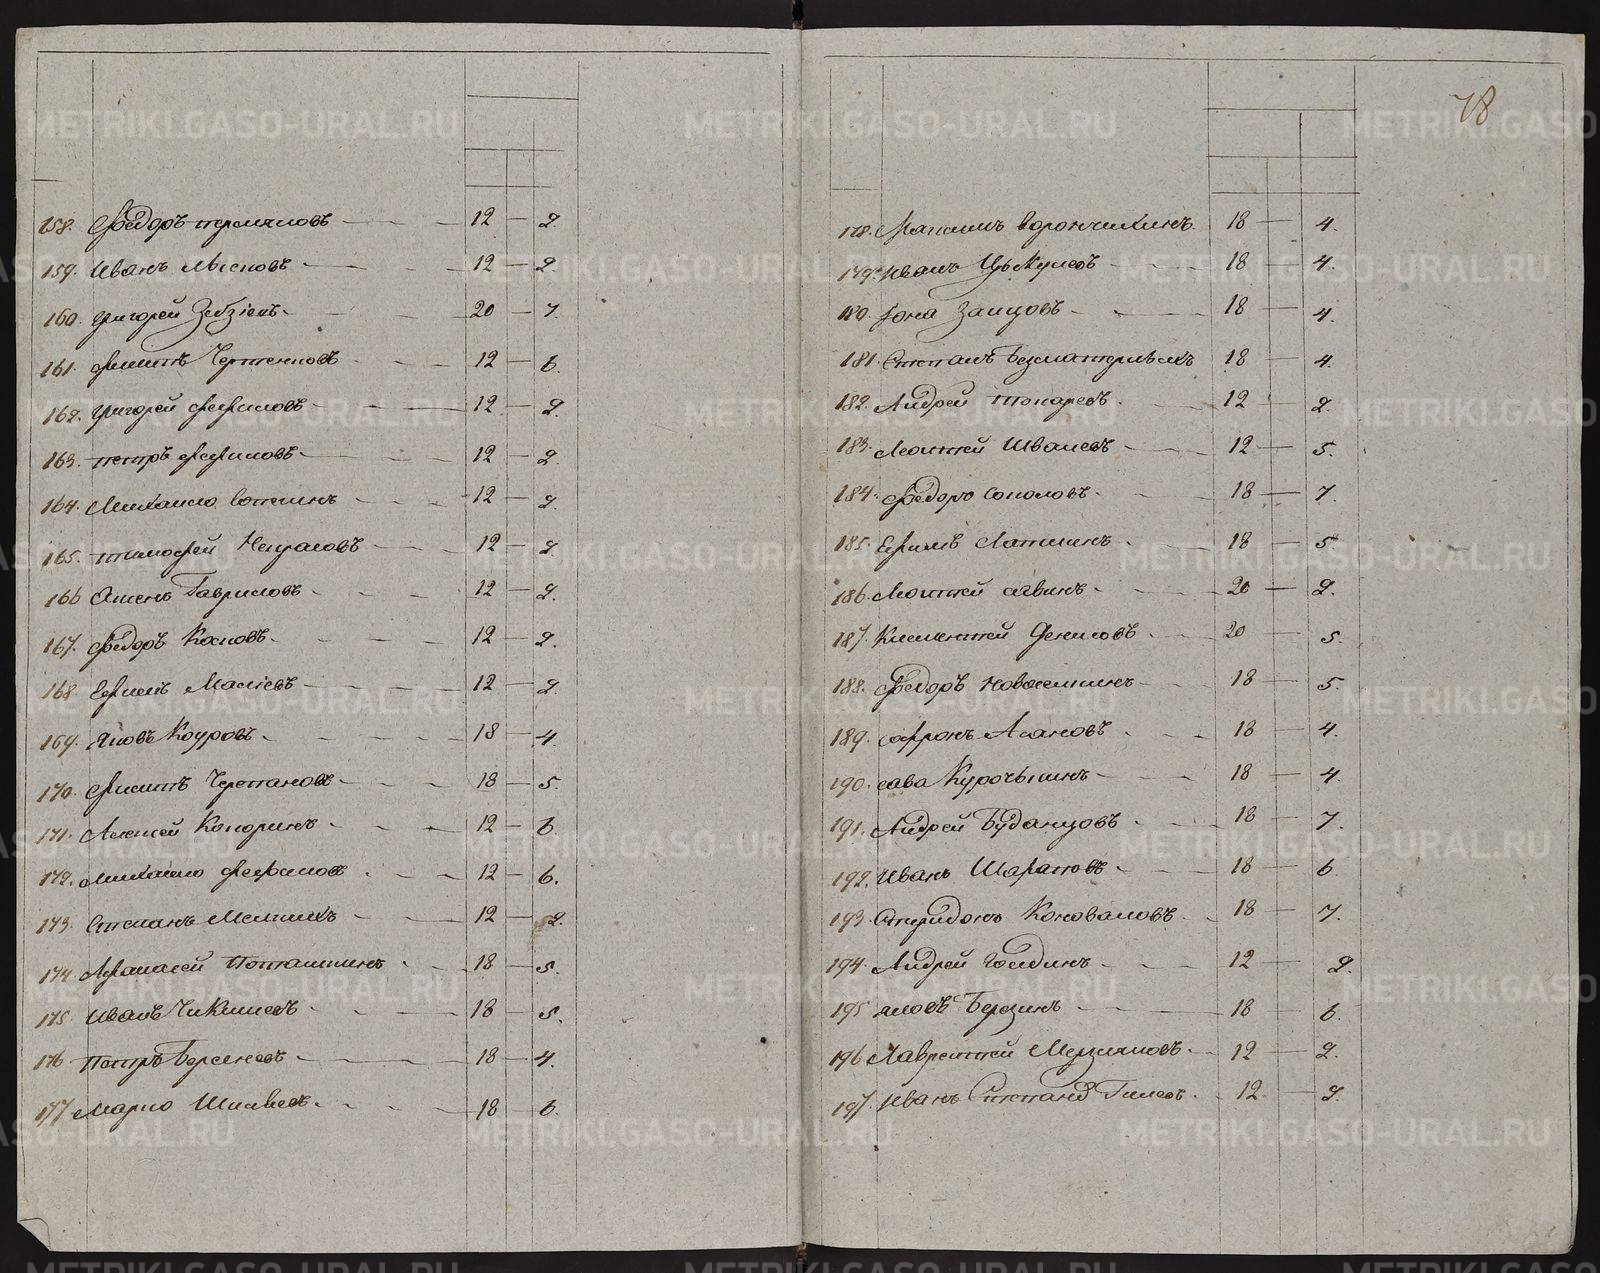 158. Федоръ пермяковъ 12 — 2.
159. Иванъ 12 — 2.
160. григорей Зебзѣевъ 20 — 7.
161. филипъ Чертенковъ 12 — 6.
162. григорей фефиловъ 12 — 2.
163. петръ фефиловъ 12 — 2.
164. Михаило вотченинъ 12 — 2.
165. тимофей Некрасовъ 12 — 2.
166 Гавриловъ 12 — 2.
167. федоръ Косковъ 12 — 2.
168 Ефимъ 12 — 2.
169. яковъ Коуровъ 18 — 4.
170. филипъ Черепановъ 18 — 5.
171. Алексей Кокоринъ 12 — 6
172. михаило фефиловъ 12 — 6.
173. Степанъ 12 — 2.
174. Афанасей Поташкинъ 18 — 5.
175. Иванъ Чикишевъ 18 — 5.
176 Петръ Берсеневъ 18 — 4.
177 Марко 18 — 6.
78
178. Максимъ ворончихинъ 18 — 4.
179. Иванъ 18 — 4.
180. Иона Заицовъ 18 — 4.
181. Степанъ Безматерныхъ 18 — 4.
182. Андрей токаревъ 12 — 2.
183. Леонтей Швалевъ 12 — 5.
184. федоръ Соколовъ 18 — 7.
185. Ефимъ Лапшинъ 18 — 5.
186. Леонтей савинъ 20 — 2.
187. Клементей Денисовъ 20 — 5.
188. федоръ Новоселкинъ 18 — 5.
189. софронъ Асановъ 18 — 4.
190. сава Курочкинъ 18 — 4.
191. Андрей Буданцовъ 18 — 7.
192. Иванъ Шараповъ 18 — 6
193. Спиридонъ Коноваловъ 18 — 7.
194. Андрей Голдинъ 12 — 2.
195 яковъ Березинъ 18 — 6.
196 Лаврентей Мерзляковъ 12 — 2.
197. Иванъ Степановъ Гилевъ 12 — 2.
METRIKI.GASO-URAL.RU